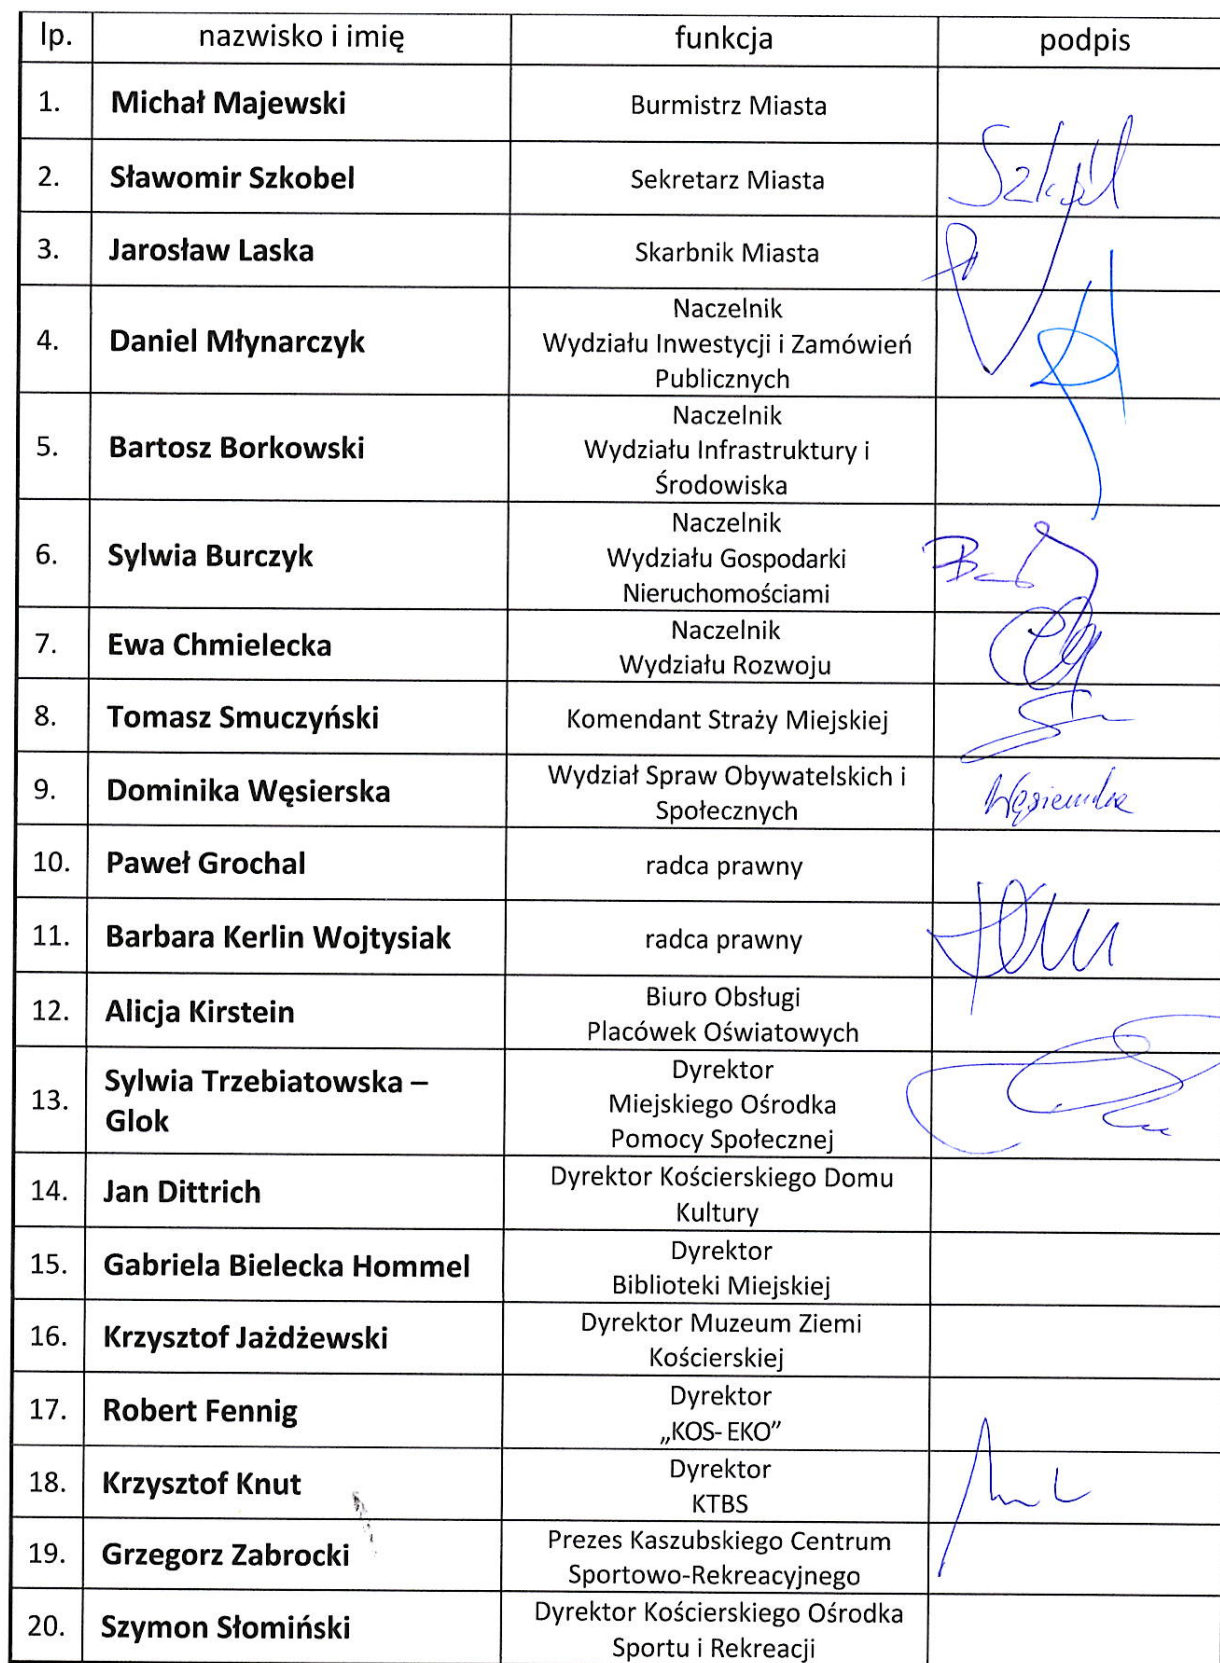 lp. nazwisko i imię funkcja podpis
1. Michał Majewski Burmistrz Miasta
2. Sławomir Szkobel Sekretarz Miasta
3. Jarosław Laska Skarbnik Miasta
4. Daniel Młynarczyk Naczelnik
Wydziału Inwestycji i Zamówień
Publicznych
5. Bartosz Borkowski Naczelnik
Wydziału Infrastruktury i
Środowiska
6. Sylwia Burczyk Naczelnik
Wydziału Gospodarki
Nieruchomościami
7. Ewa Chmielecka Naczelnik
Wydziału Rozwoju
8. Tomasz Smuczyński Komendant Straży Miejskiej
9. Dominika Węsierska Wydział Spraw Obywatelskich i
Społecznych
10. Paweł Grochal radca prawny
11. Barbara Kerlin Wojtysiak radca prawny
12. Alicja Kirstein Biuro Obsługi
Placówek Oświatowych
13. Sylwia Trzebiatowska –
Glok
Dyrektor
Miejskiego Ośrodka
Pomocy Społecznej
14. Jan Dittrich Dyrektor Kościerskiego Domu
Kultury
15. Gabriela Bielecka Hommel Dyrektor
Biblioteki Miejskiej
16. Krzysztof Jażdżewski Dyrektor Muzeum Ziemi
Kościerskiej
17. Robert Fennig Dyrektor
„KOS- EKO”
18. Krzysztof Knut Dyrektor
KTBS
19. Grzegorz Zabrocki Prezes Kaszubskiego Centrum
Sportowo-Rekreacyjnego
20. Szymon Słomiński Dyrektor Kościerskiego Ośrodka
Sportu i Rekreacji